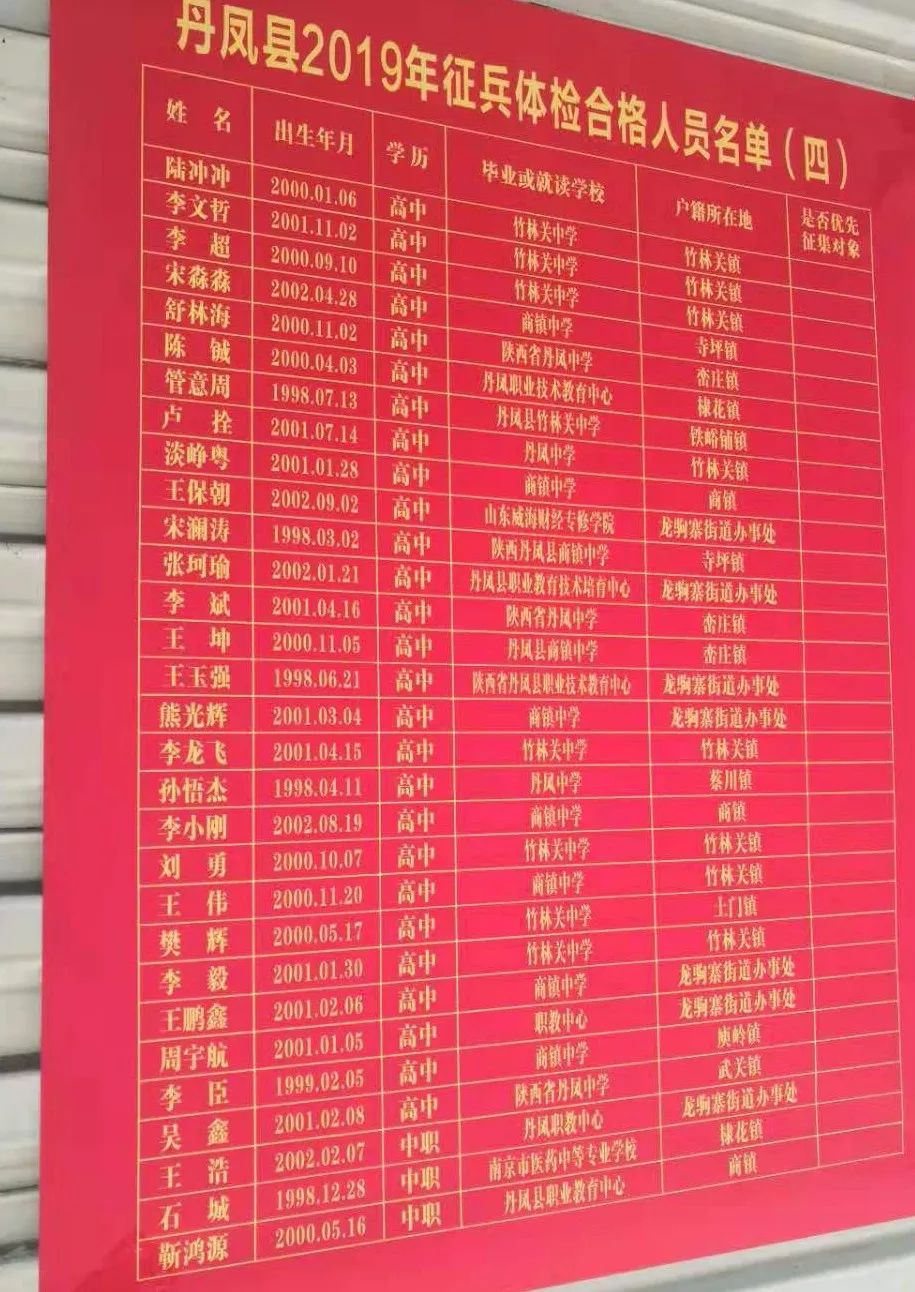 丹凤县2019年征兵体检合格人员名单（四）
姓名 出生年月 学历 毕业或就读学校 户籍所在地 是否优先征集对象
陆冲冲 2000.01.06 高中 竹林关中学 竹林关镇
李文哲 2001.11.02 高中 竹林关中学 竹林关镇
李超 2000.09.10 高中 竹林关中学 竹林关镇
宋淼淼 2002.04.28 高中 商镇中学 寺坪镇
舒林海 2000.11.02 高中 陕西省丹凤中学 峦庄镇
陈铖 2000.04.03 高中 丹凤职业技术教育中心 棣花镇
管意周 1998.07.13 高中 丹凤县竹林关中学 铁峪铺镇
卢拴 2001.07.14 高中 丹凤中学 竹林关镇
淡峥粤 2001.01.28 高中 商镇中学 商镇
王保朝 2002.09.02 高中 山东威海财经专修学院 龙驹寨街道办事处
宋澜涛 1998.03.02 高中 陕西丹凤县商镇中学 寺坪镇
张珂瑜 2002.01.21 高中 丹凤县职业教育技术培育中心 龙驹寨街道办事处
李斌 2001.04.16 高中 陕西省丹凤中学 峦庄镇
王坤 2000.11.05 高中 丹凤县商镇中学 峦庄镇
王玉强 1998.06.21 高中 陕西省丹凤县职业技术教育中心 龙驹寨街道办事处
熊光辉 2001.03.04 高中 商镇中学 龙驹寨街道办事处
李龙飞 2001.04.15 高中 竹林关中学 竹林关镇
孙悟杰 1998.04.11 高中 丹凤中学 蔡川镇
李小刚 2002.08.19 高中 商镇中学 商镇
刘勇 2000.10.07 高中 竹林关中学 竹林关镇
王伟 2000.11.20 高中 商镇中学 竹林关镇
樊辉 2000.05.17 高中 竹林关中学 土门镇
李毅 2001.01.30 高中 竹林关中学 竹林关镇
王鹏鑫 2001.02.06 高中 商镇中学 龙驹寨街道办事处
周宇航 2001.01.05 高中 职教中心 龙驹寨街道办事处
李臣 1999.02.05 高中 商镇中学 庾岭镇
吴鑫 2001.02.08 高中 陕西省丹凤中学 武关镇
王浩 2002.02.07 中职 丹凤职教中心 龙驹寨街道办事处
石城 1998.12.28 中职 南京市医药中等专业学校 棣花镇
靳鸿源 2000.05.16 中职 丹凤县职业教育中心 商镇